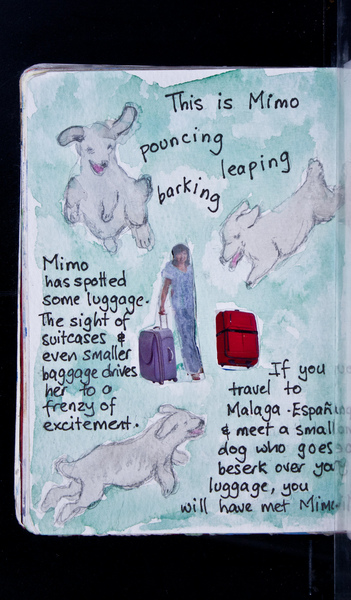 This is Mimo
pouncing
leaping
barking
Mimo
has spotted
some luggage.
The sight of
suitcases &
even smaller
baggage drives
her to a
frenzy of
excitement.
If you
travel to
Malaga - España
& meet a small
dog who goes
beserk over your
luggage, you
will have met Mimo.